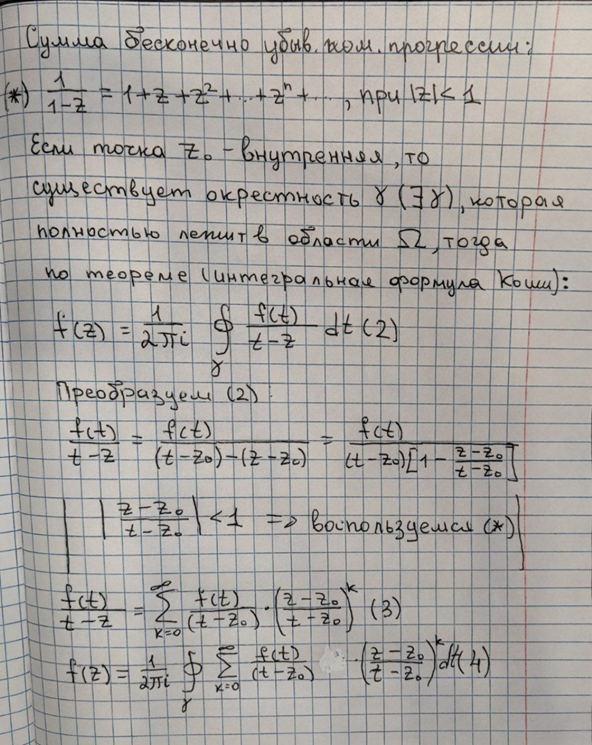 Сумма бесконечно убыв. геом. прогрессии:
(*) 1/(1-z) = 1+z+z²+...+zⁿ+..., при |z|<1
Если точка z₀ - внутренняя, то
существует окрестность γ (∃γ), которая
полностью лежит в области Ω, тогда
по теореме (интегральная формула Коши):
f(z) = 1/(2πi) ∮_γ f(t)/(t-z) dt (2)
Преобразуем (2):
f(t)/(t-z) = f(t)/((t-z₀)-(z-z₀)) = f(t)/((t-z₀)[1 - (z-z₀)/(t-z₀)])
|(z-z₀)/(t-z₀)| < 1 => воспользуемся (*)
f(t)/(t-z) = ∑_{k=0}^∞ f(t)/(t-z₀) · ((z-z₀)/(t-z₀))^k (3)
f(z) = 1/(2πi) ∮_γ ∑_{k=0}^∞ f(t)/(t-z₀) · ((z-z₀)/(t-z₀))^k dt (4)